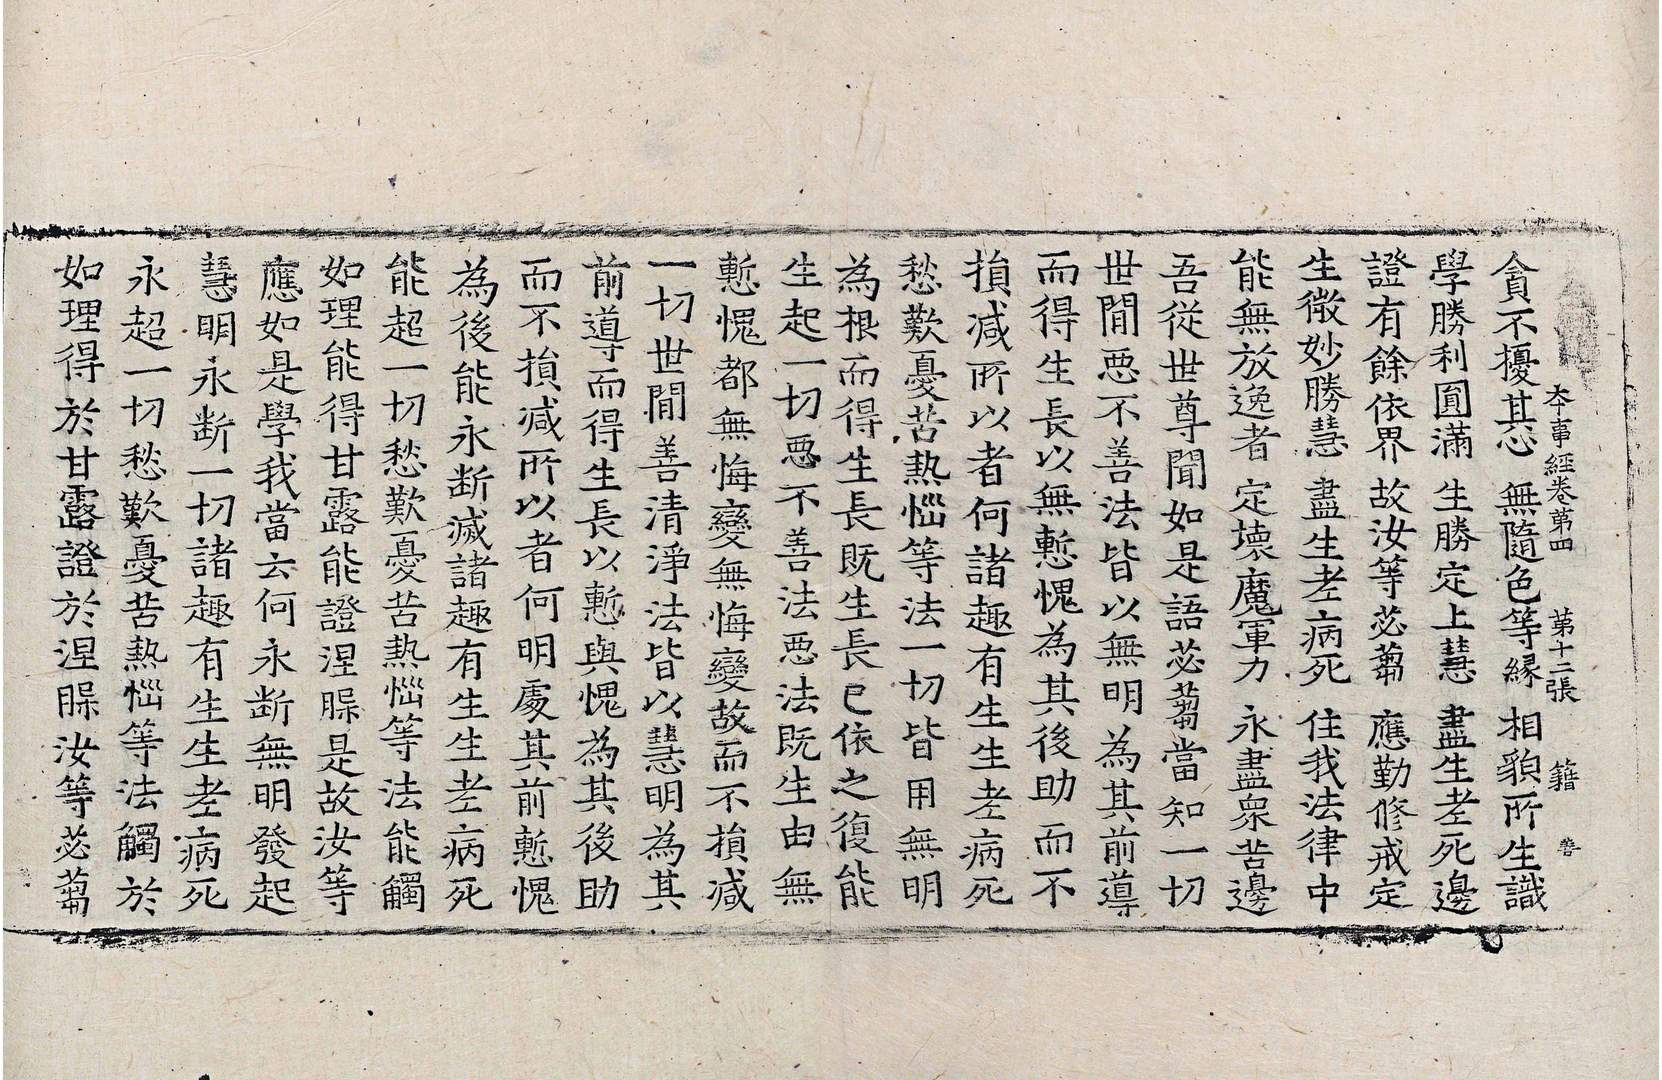 本事經卷第四 第十二張 籍
貪不擾其心 無隨色等緣 相貌所生識
學勝利圓滿 生勝定上慧 盡生老死邊
證有餘依界 故汝等苾蒭 應勤修戒定
生微妙勝慧 盡生老病死 住我法律中
能無放逸者 定壞魔軍力 永盡衆苦邊
吾從世尊聞如是語苾蒭當知一切
世間惡不善法皆以無明為其前導
而得生長以無慙愧為其後助而不
損減所以者何諸趣有生生老病死
愁歎憂苦熱惱等法一切皆用無明
為根而得生長既生長已依之復能
生起一切惡不善法惡法既生由無
慙愧都無悔變無悔變故而不損減
一切世間善清淨法皆以慧明為其
前導而得生長以慙與愧為其後助
而不損減所以者何明處其前慙愧
為後能永斷滅諸趣有生生老病死
能超一切愁歎憂苦熱惱等法能觸
如理能得甘露能證涅槃是故汝等
應如是學我當云何永斷無明發起
慧明永斷一切諸趣有生生老病死
永超一切愁歎憂苦熱惱等法觸於
如理得於甘露證於涅槃汝等苾蒭